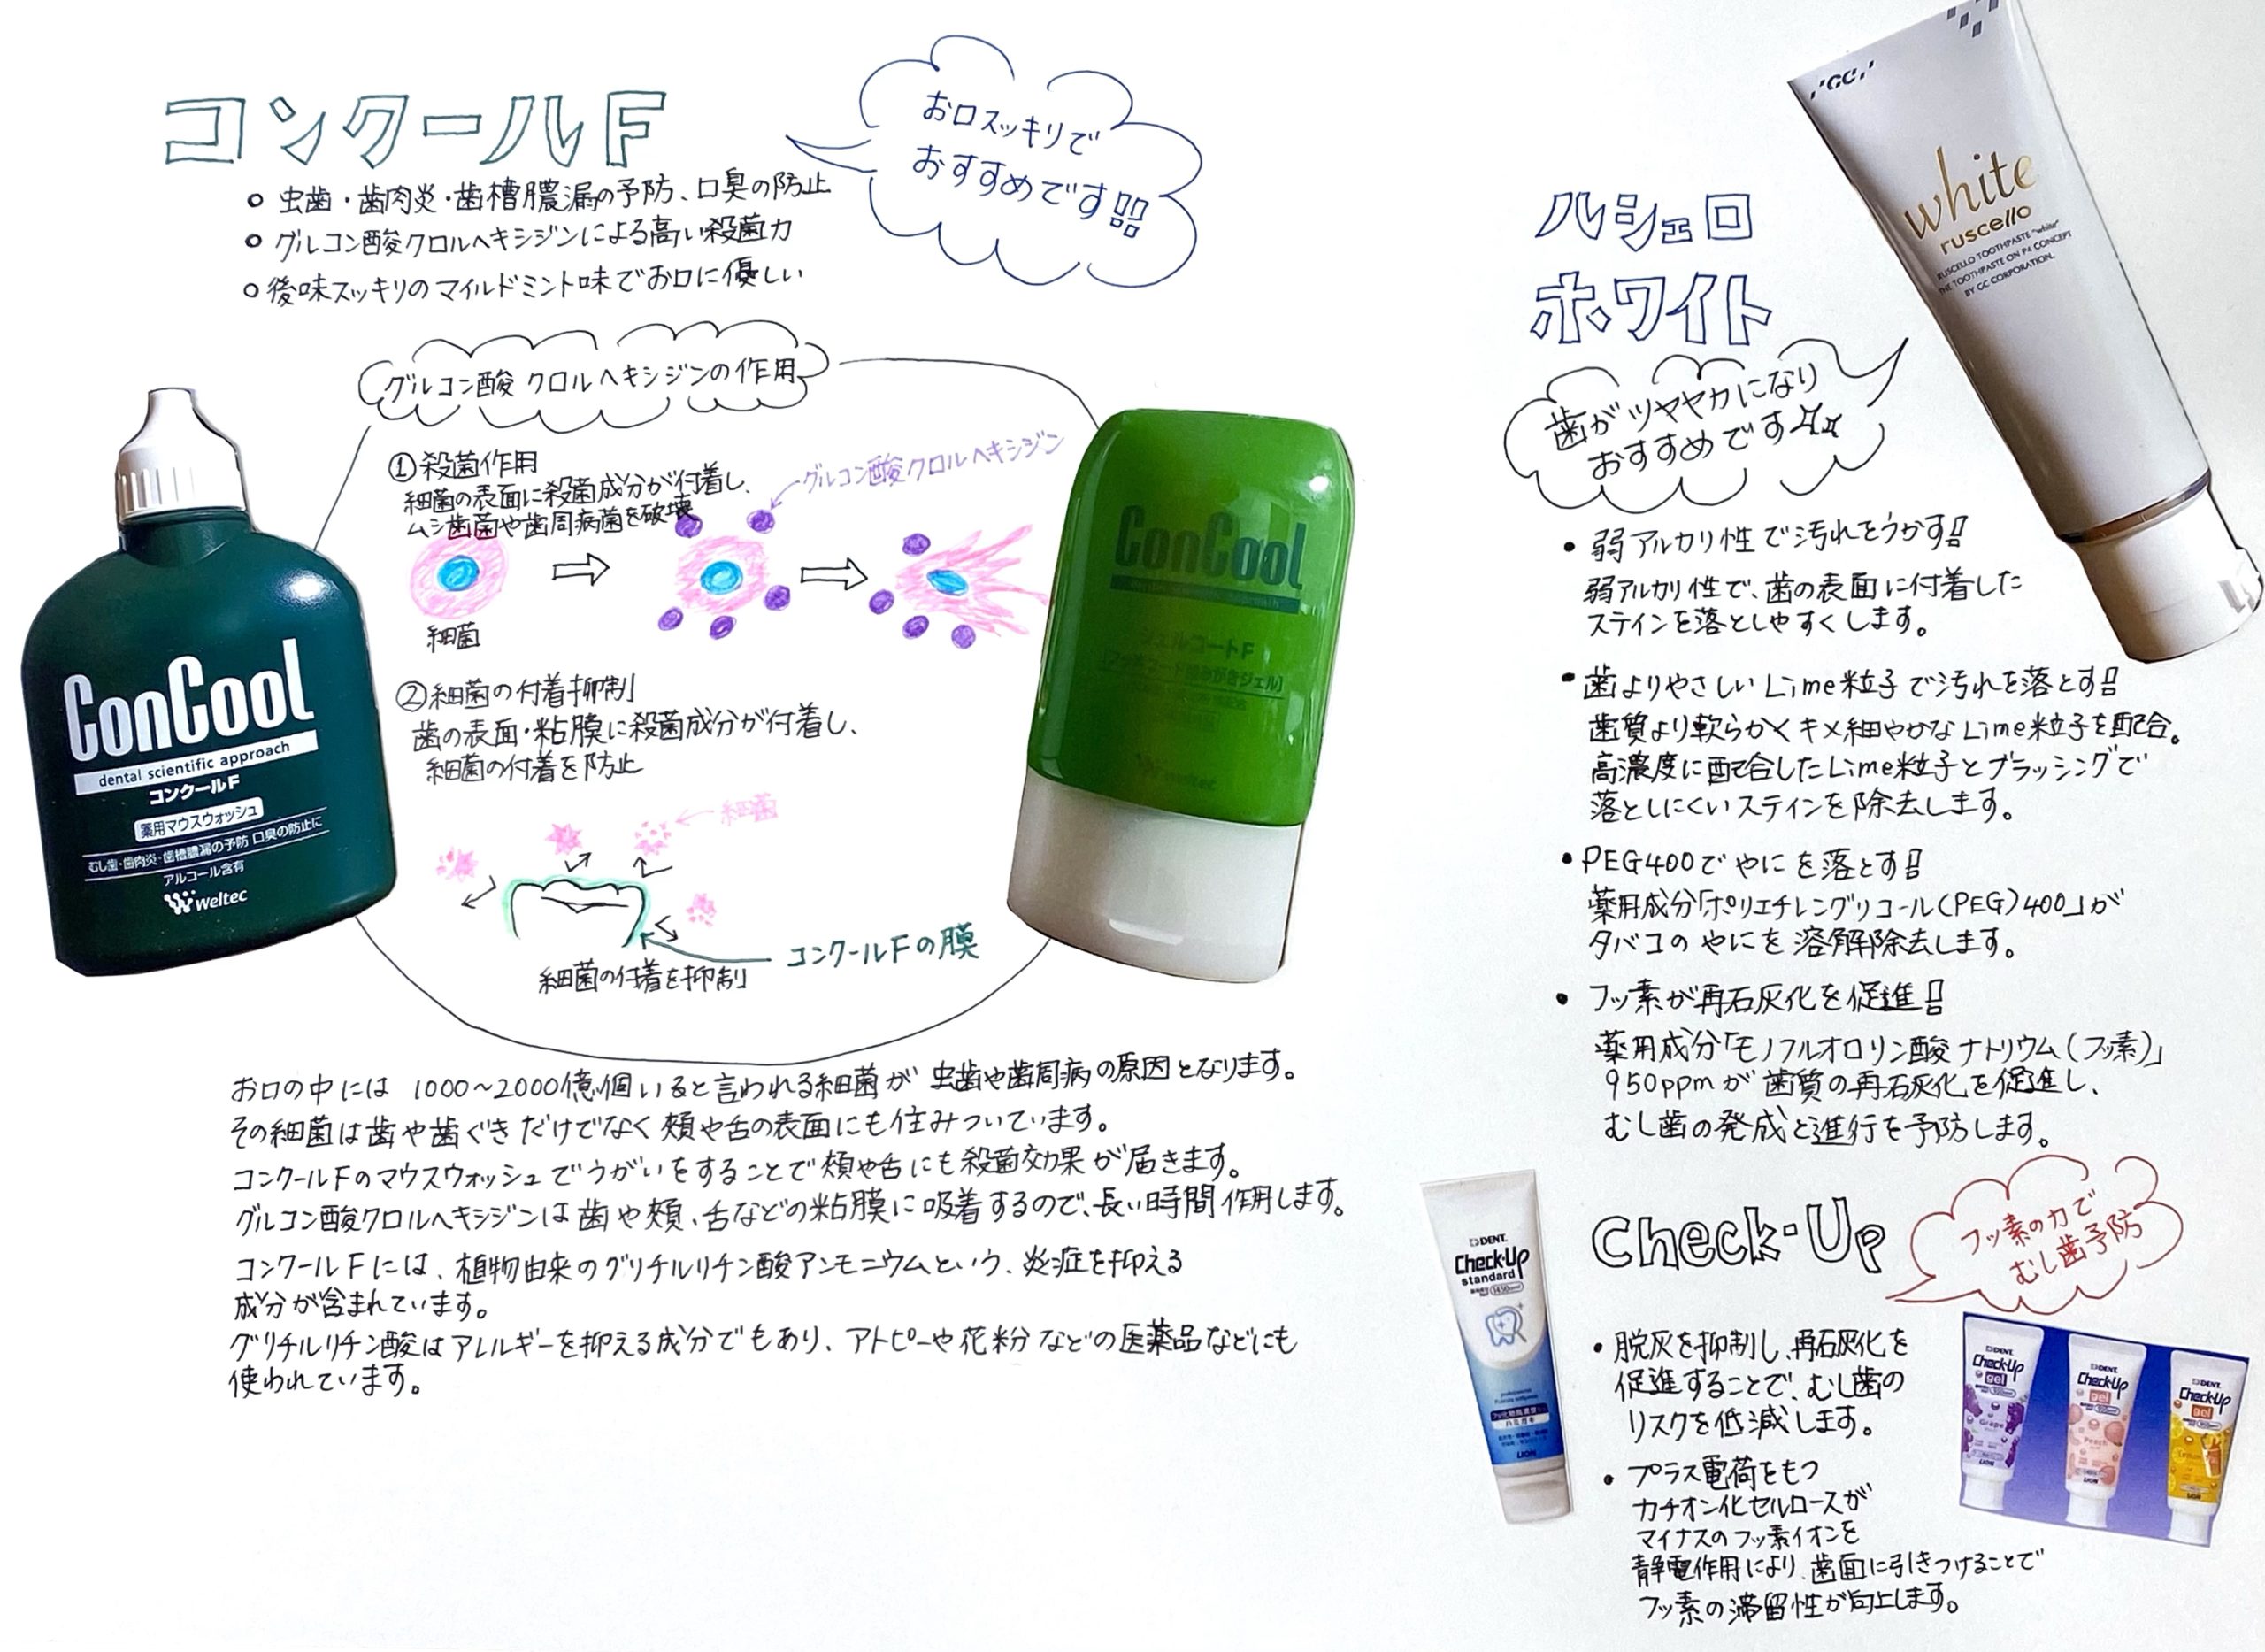 コンクールF
お口スッキリで
おすすめです!!
○ 虫歯・歯肉炎・歯槽膿漏の予防、口臭の防止
○ グルコン酸クロルヘキシジンによる高い殺菌力
○ 後味スッキリのマイルドミント味でお口に優しい
グルコン酸クロルヘキシジンの作用
①殺菌作用
細菌の表面に殺菌成分が付着し、
ムシ歯菌や歯周病菌を破壊
グルコン酸クロルヘキシジン
細菌
②細菌の付着抑制
歯の表面・粘膜に殺菌成分が付着し、
細菌の付着を防止
細菌
コンクールFの膜
細菌の付着を抑制
ConCool
dental scientific approach
コンクールF
薬用マウスウォッシュ
むし歯・歯肉炎・歯槽膿漏の予防 口臭の防止に
アルコール含有
weltec
ConCool
dental scientific approach
ジェルコートF
weltec
お口の中には 1000～2000億個いると言われる細菌が 虫歯や歯周病の原因となります。
その細菌は歯や歯ぐきだけでなく頬や舌の表面にも住みついています。
コンクールFのマウスウォッシュでうがいをすることで頬や舌にも殺菌効果が届きます。
グルコン酸クロルヘキシジンは歯や頬、舌などの粘膜に吸着するので、長い時間作用します。
コンクールFには、植物由来のグリチルリチン酸アンモニウムという、炎症を抑える
成分が含まれています。
グリチルリチン酸はアレルギーを抑える成分でもあり、アトピーや花粉などの医薬品などにも
使われています。
ルシェロ
ホワイト
歯がツヤヤカになり
おすすめです
'GC'
white
ruscello
RUSCELLO TOOTHPASTE "white"
THE TOOTHPASTE ON P4 CONCEPT
BY GC CORPORATION.
• 弱アルカリ性で汚れをうかす!!
弱アルカリ性で、歯の表面に付着した
ステインを落としやすくします。
• 歯よりやさしいLime粒子で汚れを落とす!!
歯質より軟らかくキメ細やかなLime粒子を配合。
高濃度に配合したLime粒子とブラッシングで
落としにくいステインを除去します。
• PEG400でやにを落とす!!
薬用成分「ポリエチレングリコール(PEG)400」が
タバコのやにを溶解除去します。
• フッ素が再石灰化を促進!!
薬用成分「モノフルオロリン酸ナトリウム(フッ素)」
950ppmが歯質の再石灰化を促進し、
むし歯の発成と進行を予防します。
Check-Up
フッ素の力で
むし歯予防
• 脱灰を抑制し、再石灰化を
促進することで、むし歯の
リスクを低減します。
• プラス電荷をもつ
カチオン化セルロースが
マイナスのフッ素イオンを
静電作用により、歯面に引きつけることで
フッ素の滞留性が向上します。
DENT.
Check-Up
standard
LION
DENT.
Check-Up
gel
Grape
LION
DENT.
Check-Up
gel
Peach
LION
DENT.
Check-Up
gel
LION